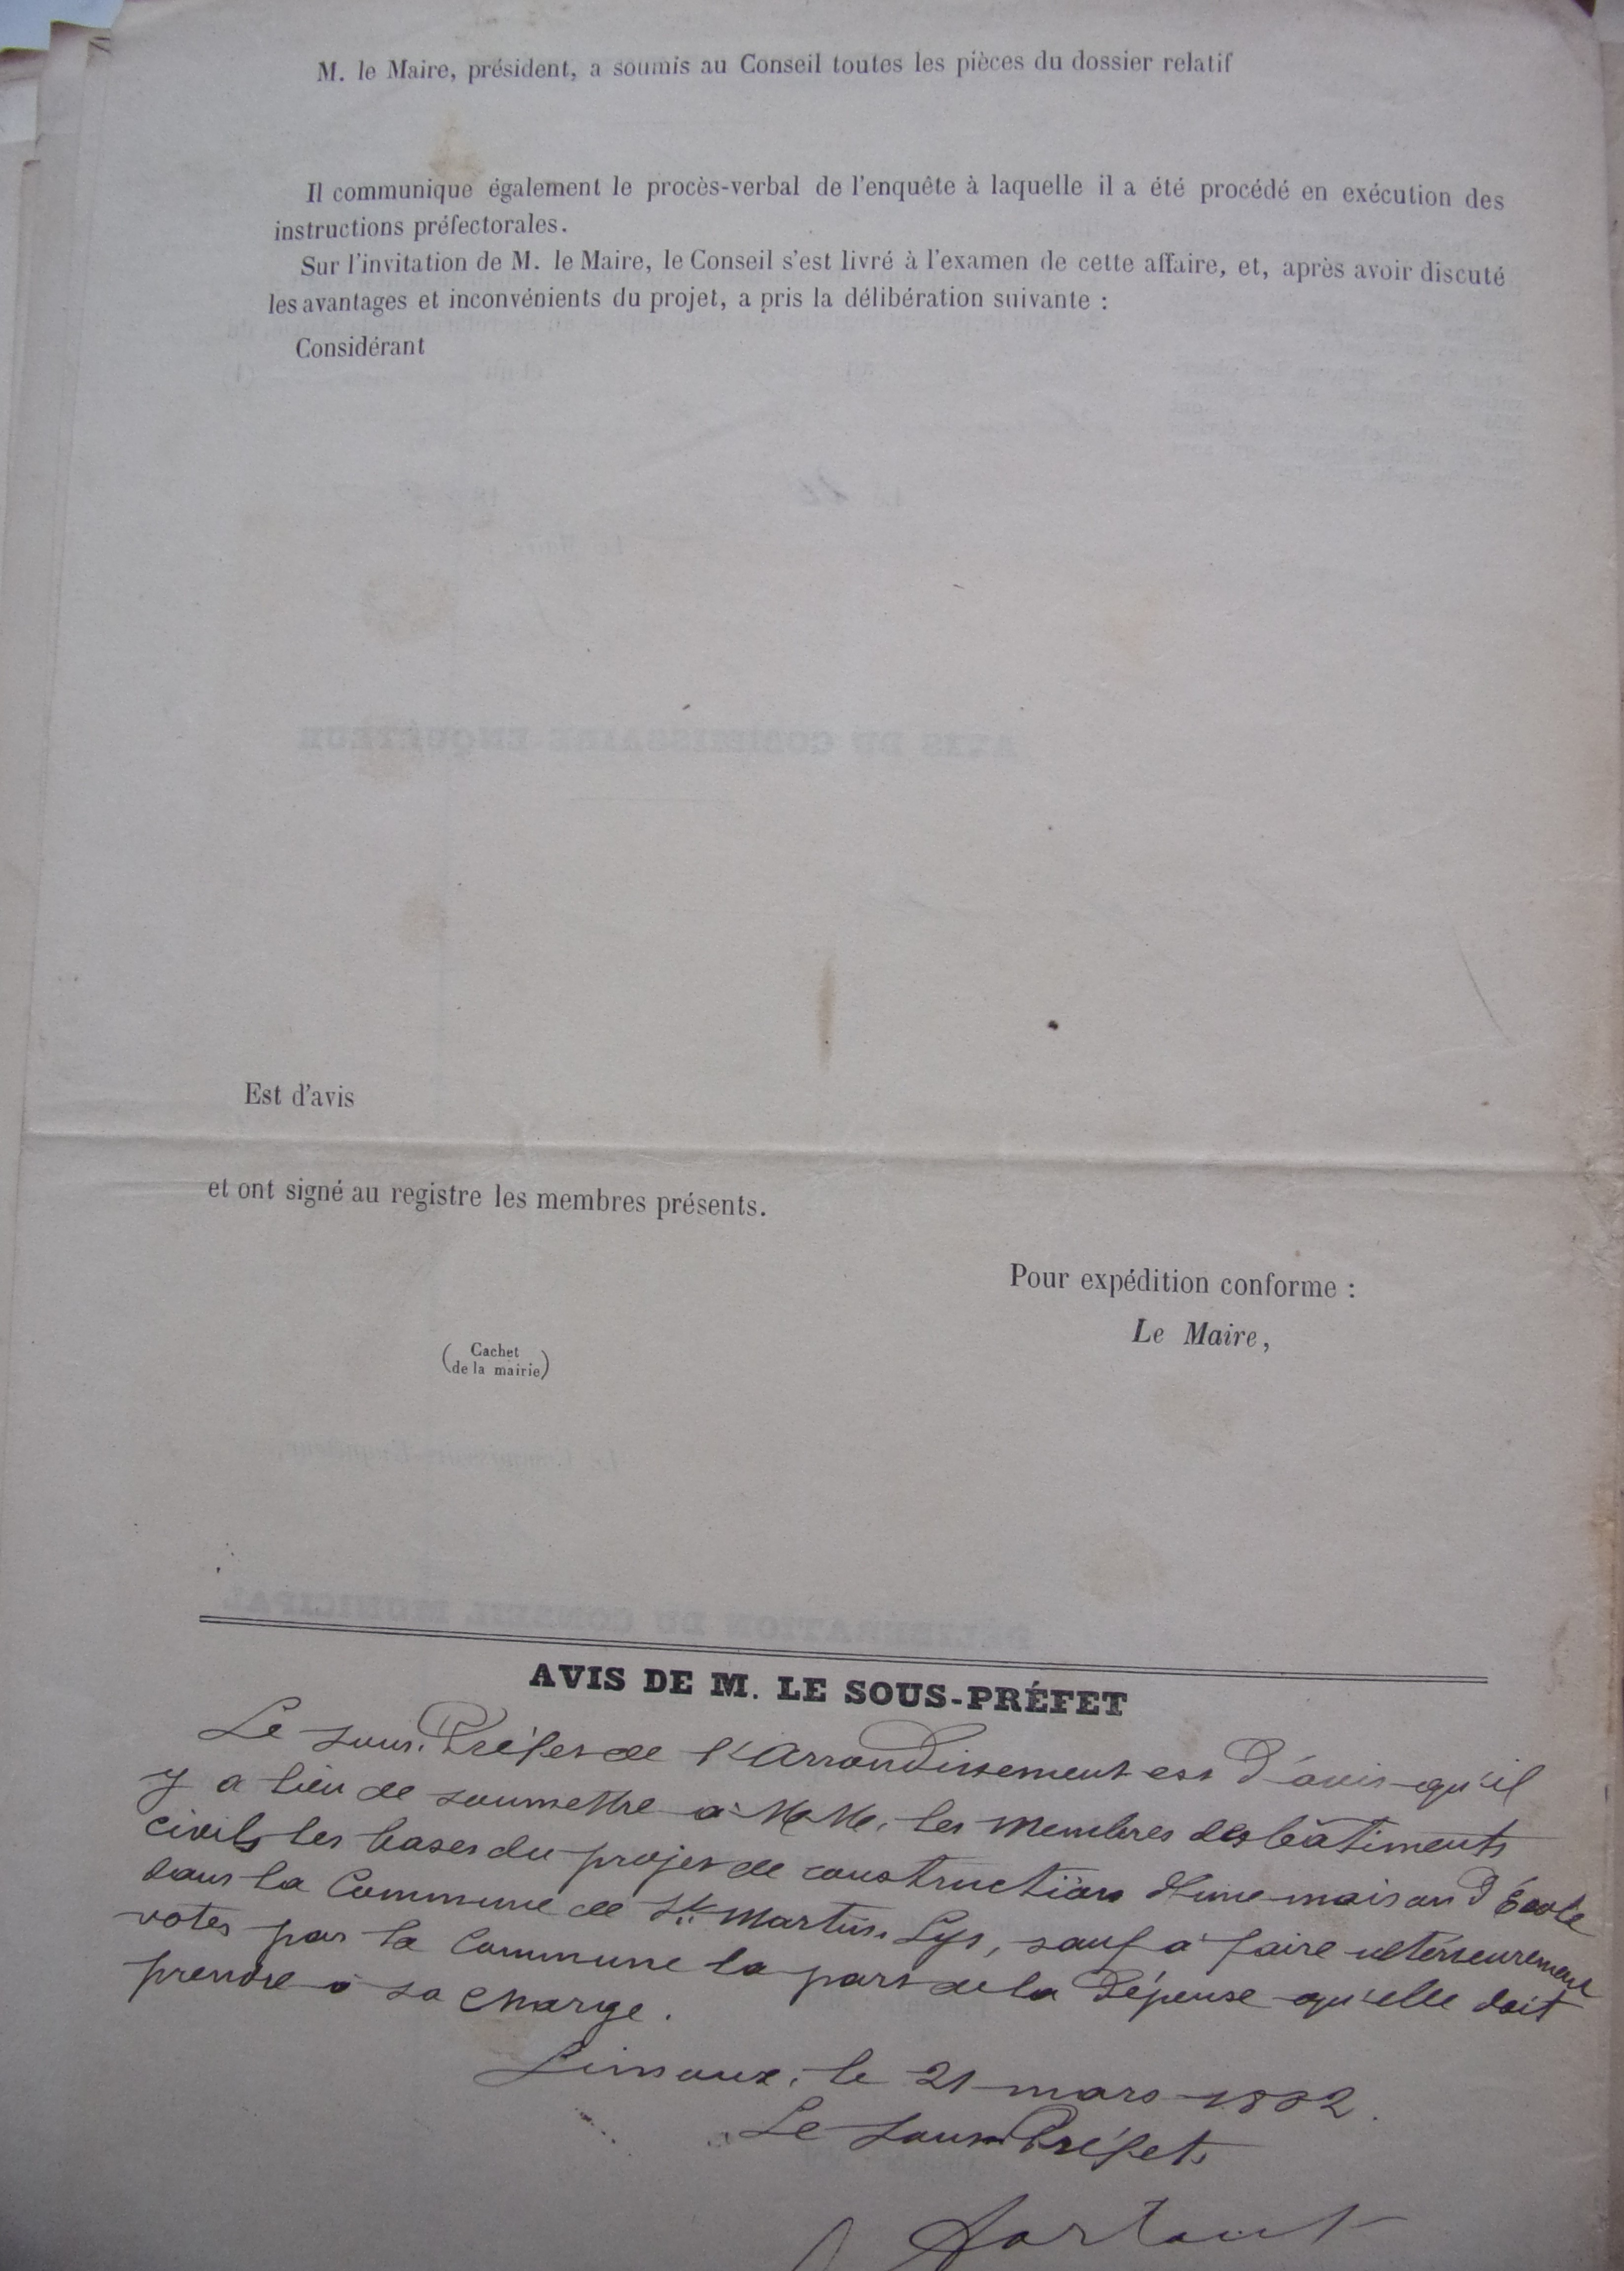 M. le Maire, président, a soumis au Conseil toutes les pièces du dossier relatif
Il communique également le procès-verbal de l'enquête à laquelle il a été procédé en exécution des
instructions préfectorales.
Sur l'invitation de M. le Maire, le Conseil s'est livré à l'examen de cette affaire, et, après avoir discuté
les avantages et inconvénients du projet, a pris la délibération suivante :
Considérant
Est d'avis
et ont signé au registre les membres présents.
Pour expédition conforme :
Le Maire,
(Cachet
de la mairie)
AVIS DE M. LE SOUS-PRÉFET
Le Sous-Préfet de l'Arrondissement est d'avis qu'il
y a lieu de soumettre à MM. les Membres des bâtiments
civils les bases du projet de construction d'une maison d'École
dans la Commune de St Martin-Lys, sauf à faire ultérieurement
voter par la Commune la part de la dépense qu'elle doit
prendre à sa charge.
Limoux, le 21 mars 1882.
Le Sous-Préfet,